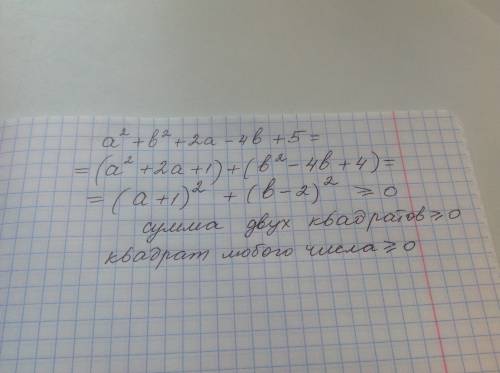 a² + b² + 2a - 4b + 5 =
= (a² + 2a + 1) + (b² - 4b + 4) =
= (a + 1)² + (b - 2)² ≥ 0
сумма двух квадратов ≥ 0
квадрат любого числа ≥ 0